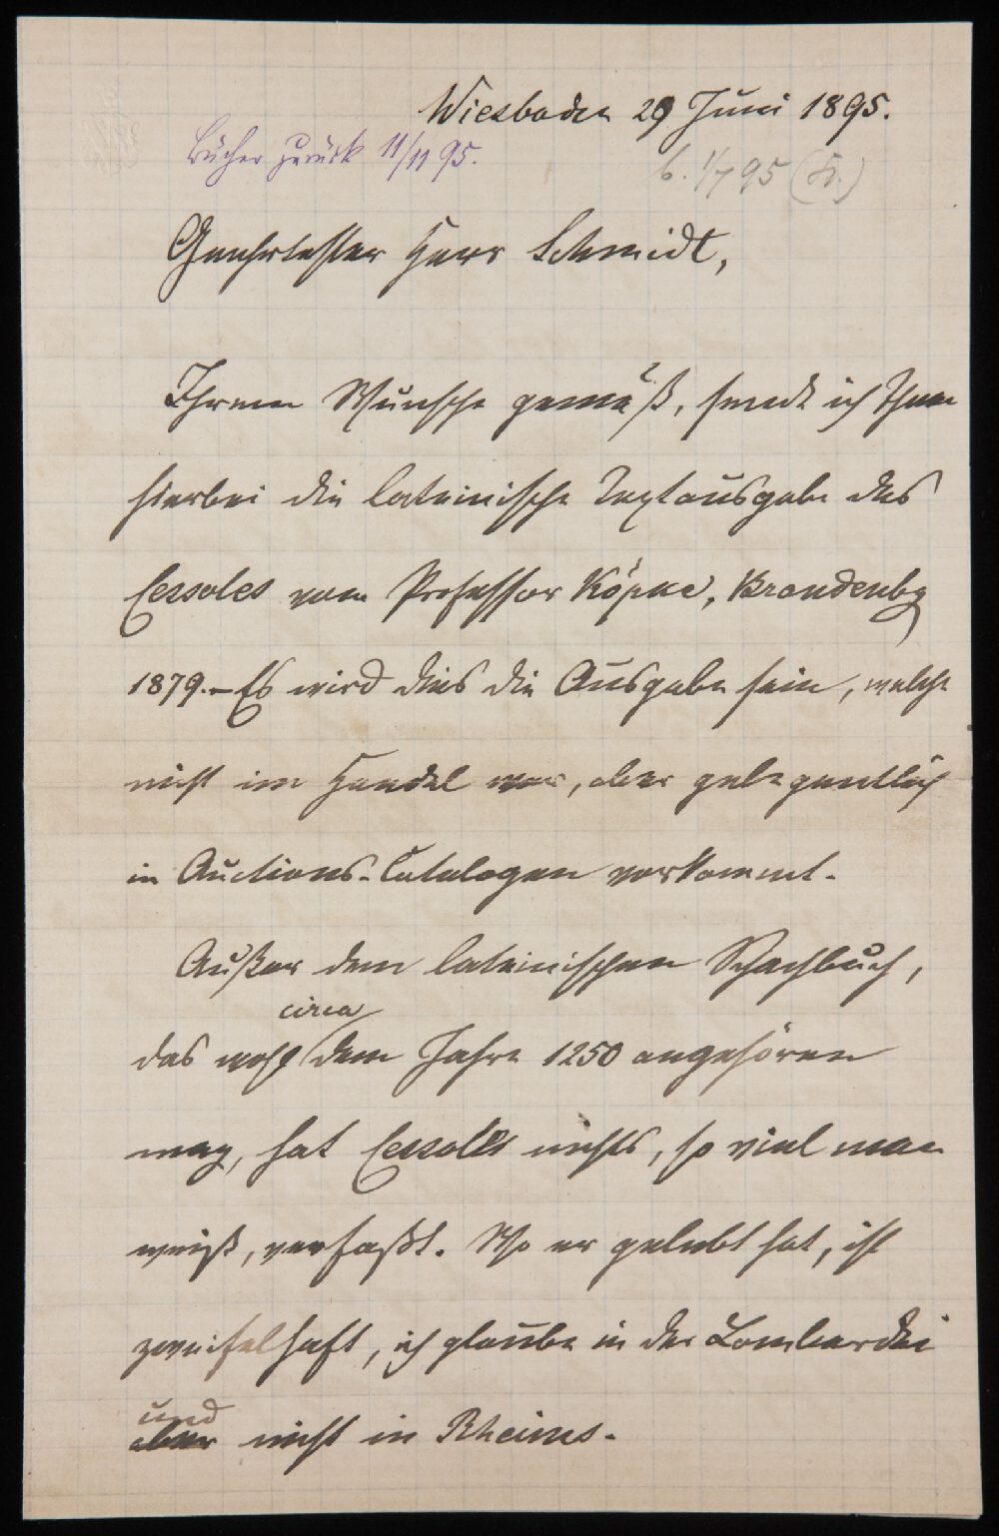 Wiesbaden 29 Juni 1895.
Bücher zurück 11/11 95.
b. 1/7 95
Geehrtester Herr Schmidt,
Ihrem Wunsche gemäß, sende ich Ihnen
hierbei die lateinische Textausgabe des
Cessoles vom Professor Köpke, Brandenbg
1879. – Es wird dies die Ausgabe sein, welche
nicht im Handel war, aber gelegentlich
in Auctions-Catalogen vorkommt.
Außer dem lateinischen Schachbuch,
circa
das wohl dem Jahre 1250 angehören
mag, hat Cessoles nichts, so viel man
weiß, verfaßt. Wo er gelebt hat, ist
zweifelhaft, ich glaube in der Lombardei
und
aber nicht in Rheims.